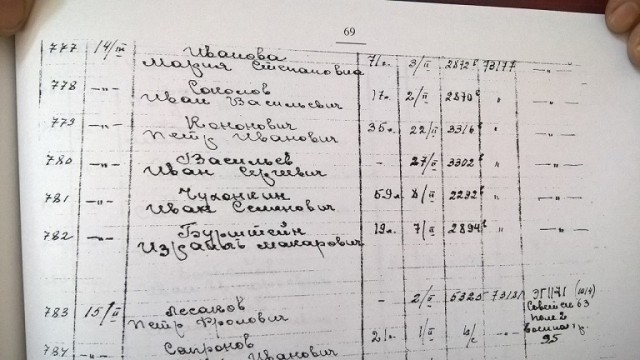 69
777 14/III Иванова
Мария Степановна 71л. 3/II 2872 73177 —„—
778 —„— Соколов
Иван Васильевич 17л. 2/II 2870 „ —„—
779 —„— Кононович
Петр Иванович 35л. 22/II 3316 „ —„—
780 —„— Васильев
Иван Сергеевич - 27/II 3302 „ —„—
781 —„— Чухонкин
Иван Семенович 59л. 8/II 2232 „ —„—
782 —„— Бурштейн
Израиль Макарович 19л. 7/II 2894 „ —„—
783 15/II Лесаков
Петр Фролович - 2/II 5325 73181
784 Сапронов 21л. 1/II б/с
Иванович 95